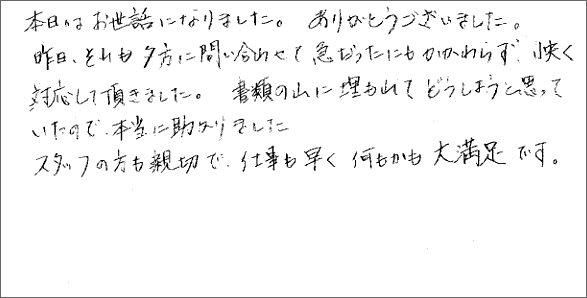 本日はお世話になりました。 ありがとうございました。
昨日、それも夕方に問い合わせて急だったにもかかわらず、快く
対応して頂きました。 書類の山に埋もれてどうしようと思って
いたので、本当に助かりました
スタッフの方も親切で、仕事も早く何もかも大満足です。